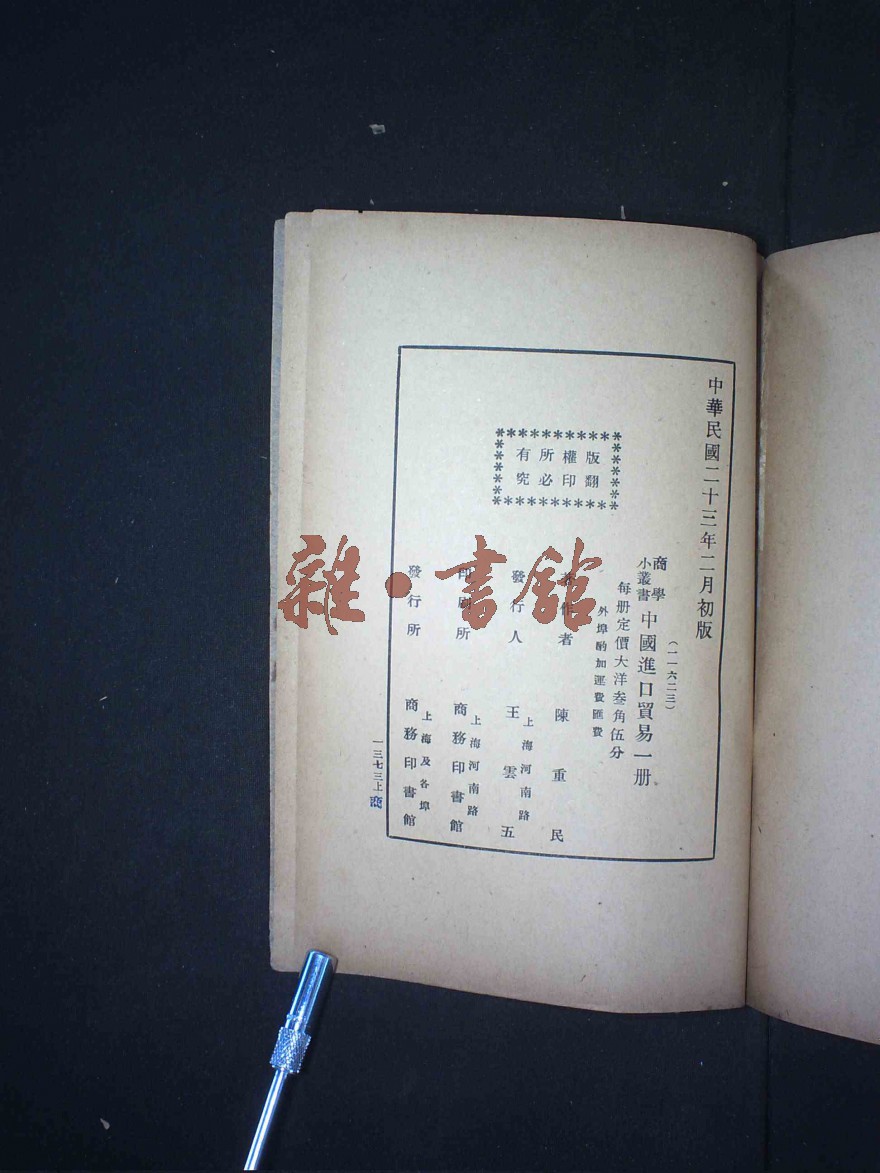 中華民國二十三年二月初版
(一一六二三)
商學
小叢書
中國進口貿易一册
每册定價大洋叁角伍分
外埠酌加運費匯費
版權所有
翻印必究
著作者 陳重民
發行人 王雲五
上海河南路
印刷所 商務印書館
上海河南路
發行所 商務印書館
上海及各埠
一三七三上
商
雜·書館